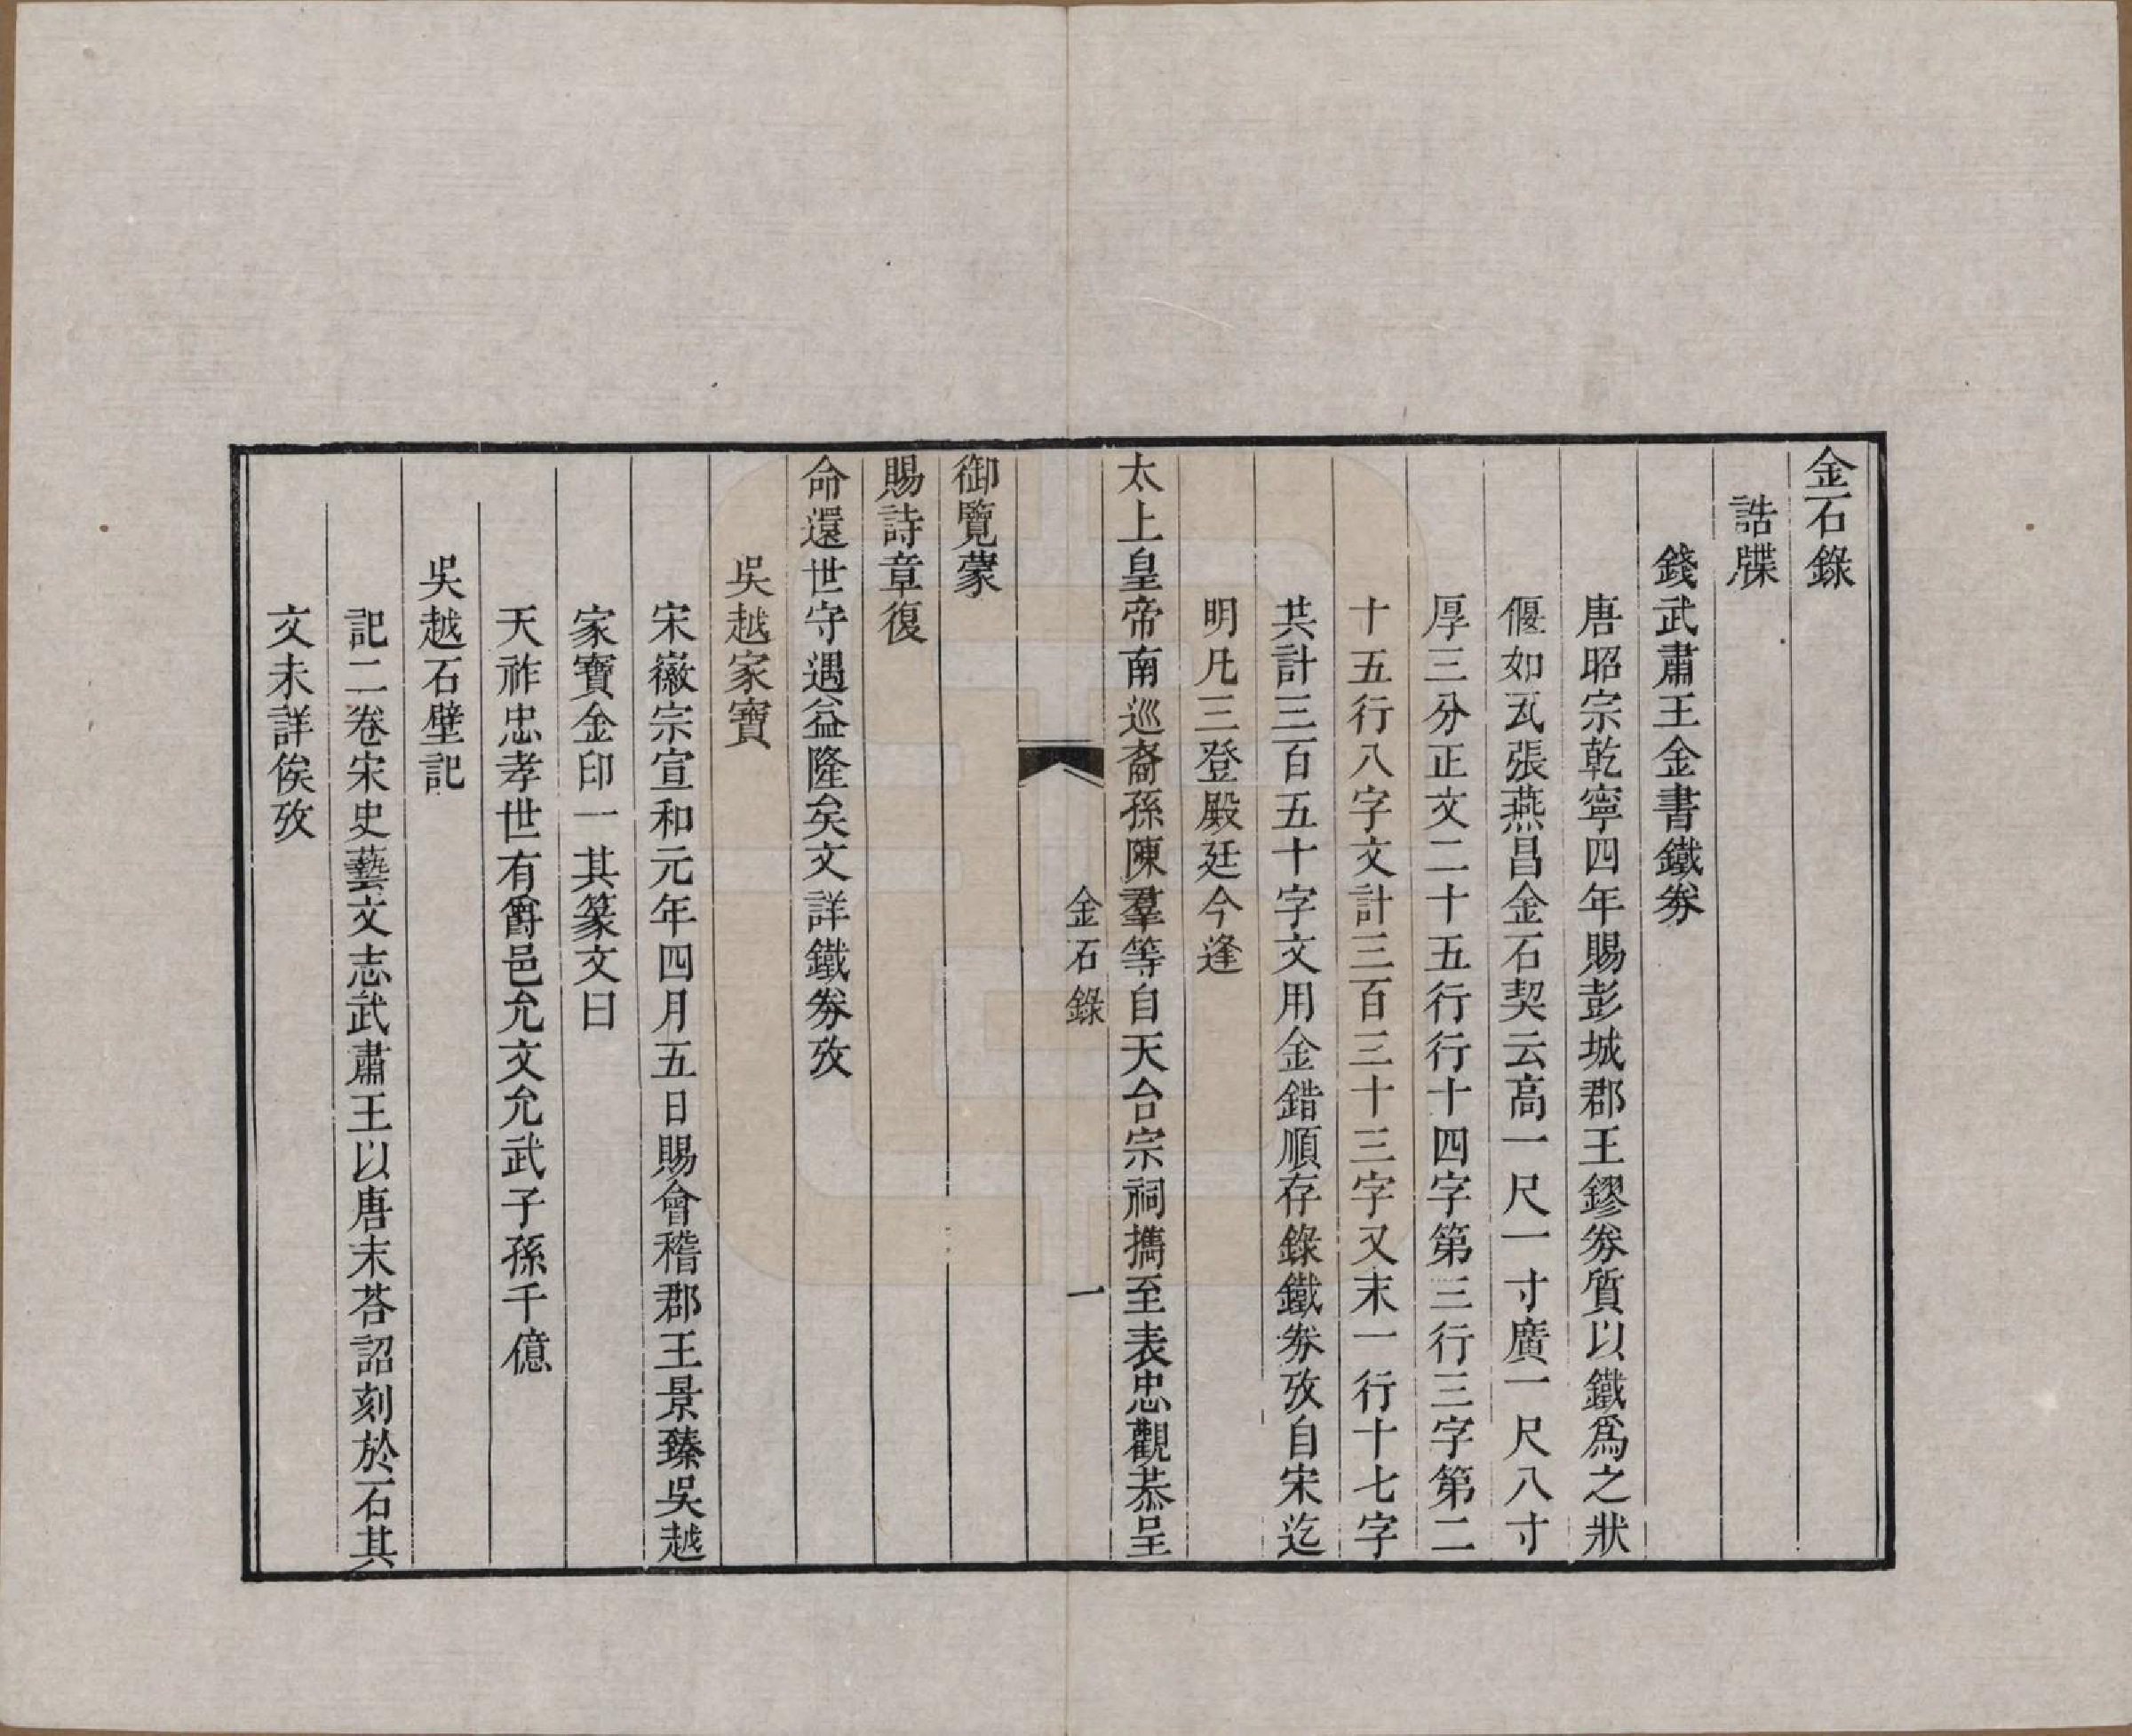 金石錄
誥牒
錢武肅王金書鐵劵
唐昭宗乾寧四年賜彭城郡王鏐劵質以鐵爲之狀
偃如瓦張燕昌金石契云高一尺一寸廣一尺八寸
厚三分正文二十五行行十四字第三行三字第二
十五行八字文計三百三十三字又末一行十七字
共計三百五十字文用金錯順存錄鐵劵攷自宋迄
明凡三登殿廷今逢
太上皇帝南巡裔孫陳羣等自天台宗祠攜至表忠觀恭呈
金石錄
一
御覽蒙
賜詩章復
命還世守遇益隆矣文詳鐵劵攷
吳越家寶
宋徽宗宣和元年四月五日賜會稽郡王景臻吳越
家寶金印一其篆文曰
天祚忠孝世有爵邑允文允武子孫千億
吳越石壁記
記二卷宋史藝文志武肅王以唐末荅詔刻於石其
文未詳俟攷